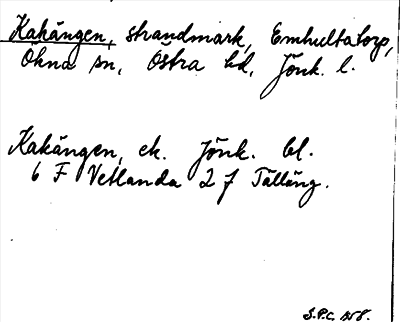 Kakängen, strandmark, Emhultatorp,
Ökna sn, Östra hd, Jönk. l.
Kakängen, ek. Jönk. bl.
6 F Vetlanda 2 j Tälläng.